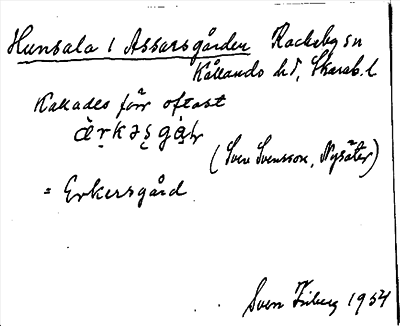 Hunsala 1 Assarsgården Rackeby sn
Kållands hd, Skarab. l
Kallades förr oftast
(Sven Svensson, Nysäter)
= Erkersgård
Sven Friberg 1954